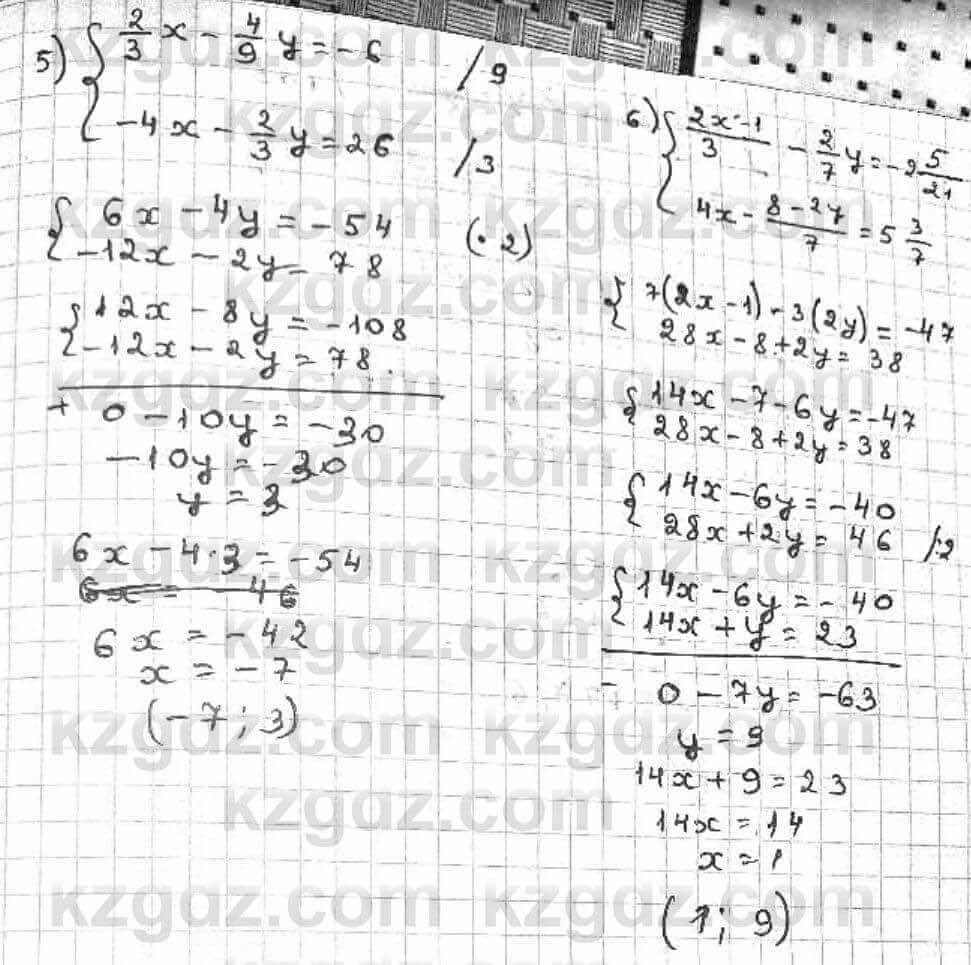 5) { 2/3 x - 4/9 y = -6 / 9
-4x - 2/3 y = 26 / 3
{ 6x - 4y = -54 (· 2)
-12x - 2y = 78
{ 12x - 8y = -108
-12x - 2y = 78.
+ 0 - 10y = -30
-10y = -30
y = 3
6x - 4·3 = -54
6x = -46
6x = -42
x = -7
(-7; 3)
6) { 2x-1/3 - 2/7 y = -2 5/21
4x - 8-2y/7 = 5 3/7
{ 7(2x-1) - 3(2y) = -47
28x - 8 + 2y = 38
{ 14x - 7 - 6y = -47
28x - 8 + 2y = 38
{ 14x - 6y = -40
28x + 2y = 46 /:2
{ 14x - 6y = -40
14x + y = 23
- 0 - 7y = -63
y = 9
14x + 9 = 23
14x = 14
x = 1
(1; 9)
kzgdz.com kzgdz.com
kzgdz.com
kzgdz.com kzgdz.com
kzgdz.com
kzgdz.com kzgdz.com
kzgdz.com
kzgdz.com kzgdz.com
kzgdz.com
kzgdz.com kzgdz.com
kzgdz.com
kzgdz.com kzgdz.com